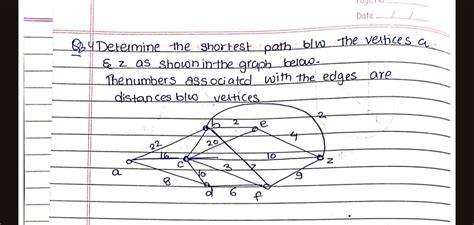 Date
Q.4 Determine the shortest path b/w the vertices a
& z as shown in the graph below.
The numbers associated with the edges are
distances b/w vertices
b 2 e 2
22 20 4
16 c 10 z
a 3 7
8 10 9
d 6 f